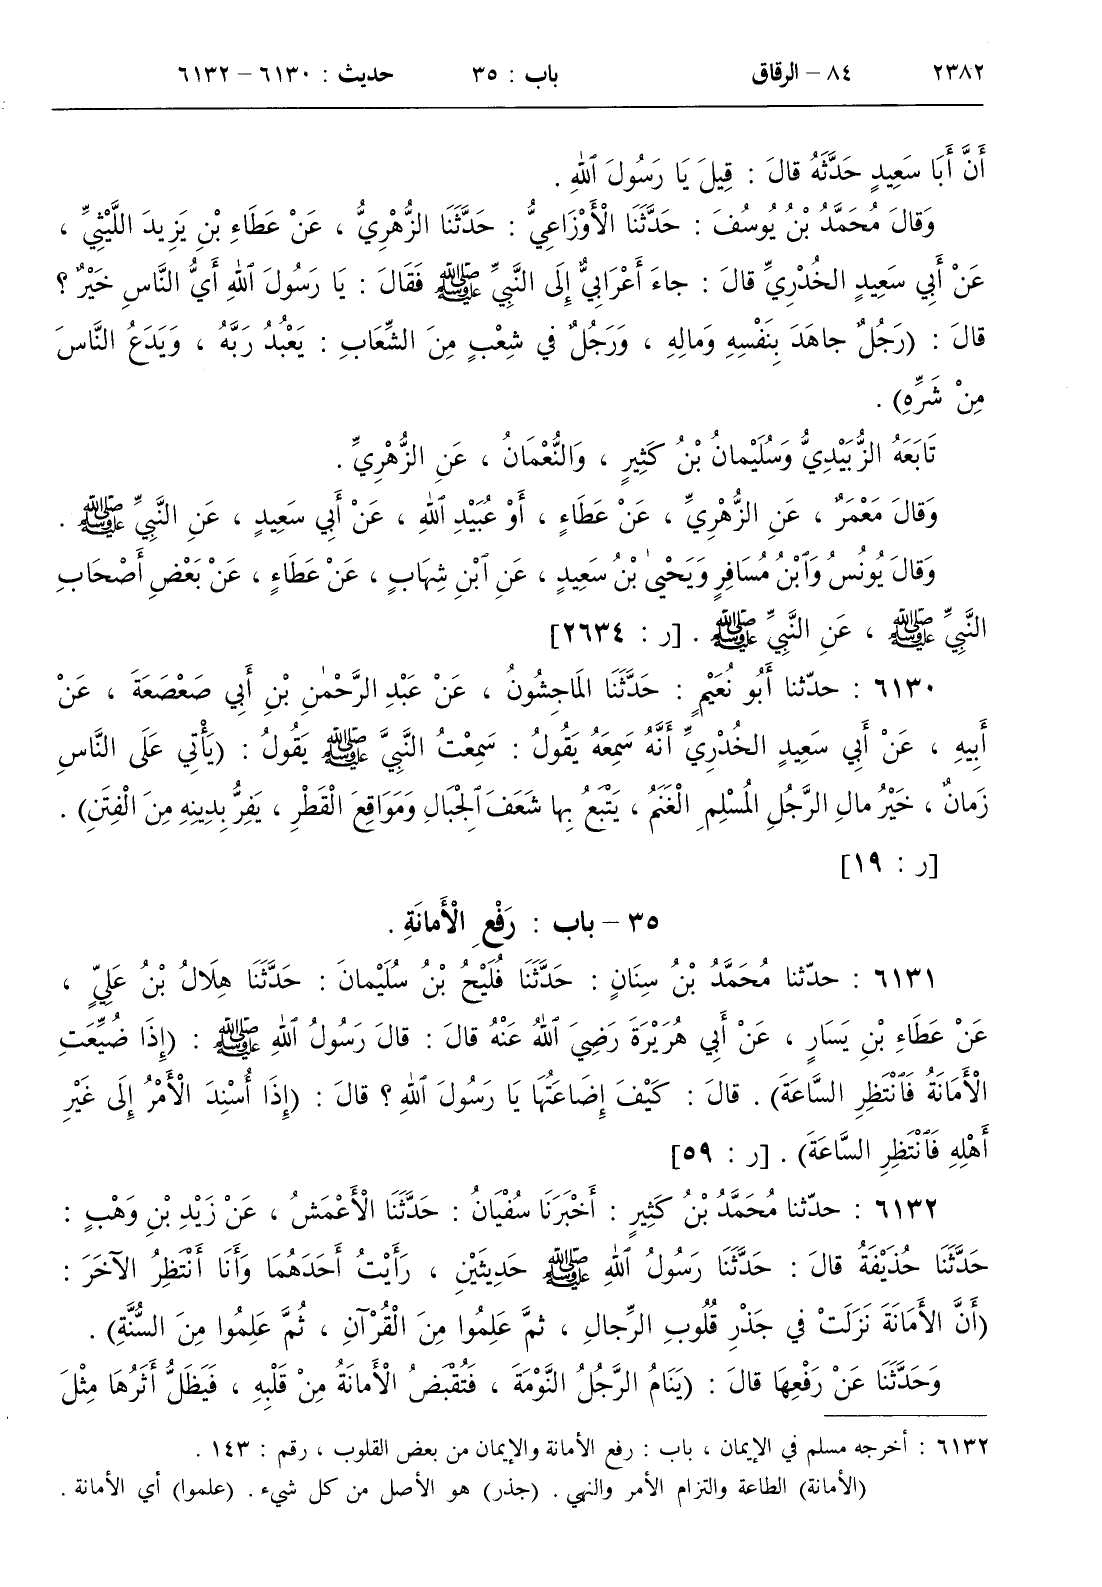 ٢٣٨٢ ٨٤ – الرقاق باب : ٣٥ حديث : ٦١٣٠ – ٦١٣٢
أَنَّ أَبَا سَعِيدٍ حَدَّثَهُ قالَ : قِيلَ يَا رَسُولَ ٱللهِ .
وَقالَ مُحَمَّدُ بْنُ يُوسُفَ : حَدَّثَنَا الْأَوْزَاعِيُّ : حَدَّثَنَا الزُّهْرِيُّ ، عَنْ عَطَاءِ بْنِ يَزِيدَ اللَّيْثِيِّ ،
عَنْ أَبِي سَعِيدٍ الخُدْرِيِّ قالَ : جاءَ أَعْرَابِيٌّ إِلَى النَّبِيِّ ﷺ فَقَالَ : يَا رَسُولَ ٱللهِ أَيُّ النَّاسِ خَيْرٌ ؟
قالَ : (رَجُلٌ جاهَدَ بِنَفْسِهِ وَمالِهِ ، وَرَجُلٌ في شِعْبٍ مِنَ الشِّعَابِ : يَعْبُدُ رَبَّهُ ، وَيَدَعُ النَّاسَ
مِنْ شَرِّهِ) .
تَابَعَهُ الزُّبَيْدِيُّ وَسُلَيْمانُ بْنُ كَثِيرٍ ، وَالنُّعْمَانُ ، عَنِ الزُّهْرِيِّ .
وَقالَ مَعْمَرٌ ، عَنِ الزُّهْرِيِّ ، عَنْ عَطَاءٍ ، أَوْ عُبَيْدِ ٱللهِ ، عَنْ أَبِي سَعِيدٍ ، عَنِ النَّبِيِّ ﷺ .
وَقالَ يُونُسُ وَٱبْنُ مُسَافِرٍ وَيَحْيىٰ بْنُ سَعِيدٍ ، عَنِ ٱبْنِ شِهَابٍ ، عَنْ عَطَاءٍ ، عَنْ بَعْضِ أَصْحَابِ
النَّبِيِّ ﷺ ، عَنِ النَّبِيِّ ﷺ . [ر : ٢٦٣٤]
٦١٣٠ : حدّثنا أَبُو نُعَيْمٍ : حَدَّثَنَا المَاجِشُونُ ، عَنْ عَبْدِ الرَّحْمٰنِ بْنِ أَبِي صَعْصَعَةَ ، عَنْ
أَبِيهِ ، عَنْ أَبِي سَعِيدٍ الخُدْرِيِّ أَنَّهُ سَمِعَهُ يَقُولُ : سَمِعْتُ النَّبِيَّ ﷺ يَقُولُ : (يَأْتِي عَلَى النَّاسِ
زَمانٌ ، خَيْرُ مالِ الرَّجُلِ المُسْلِمِ الْغَنَمُ ، يَتْبَعُ بِها شَعَفَ ٱلجِبَالِ وَمَوَاقِعَ الْقَطْرِ ، يَفِرُّ بِدِينِهِ مِنَ الْفِتَنِ) .
[ر : ١٩]
٣٥ – باب : رَفْعِ الْأَمانَةِ .
٦١٣١ : حدّثنا مُحَمَّدُ بْنُ سِنَانٍ : حَدَّثَنَا فُلَيْحُ بْنُ سُلَيْمانَ : حَدَّثَنَا هِلَالُ بْنُ عَلِيٍّ ،
عَنْ عَطَاءِ بْنِ يَسَارٍ ، عَنْ أَبِي هُرَيْرَةَ رَضِيَ ٱللهُ عَنْهُ قالَ : قالَ رَسُولُ ٱللهِ ﷺ : (إِذَا ضُيِّعَتِ
الْأَمَانَةُ فَٱنْتَظِرِ السَّاعَةَ) . قالَ : كَيْفَ إِضَاعَتُهَا يَا رَسُولَ ٱللهِ ؟ قالَ : (إِذَا أُسْنِدَ الْأَمْرُ إِلَى غَيْرِ
أَهْلِهِ فَٱنْتَظِرِ السَّاعَةَ) . [ر : ٥٩]
٦١٣٢ : حدّثنا مُحَمَّدُ بْنُ كَثِيرٍ : أَخْبَرَنَا سُفْيَانُ : حَدَّثَنَا الْأَعْمَشُ ، عَنْ زَيْدِ بْنِ وَهْبٍ :
حَدَّثَنَا حُذَيْفَةُ قالَ : حَدَّثَنَا رَسُولُ ٱللهِ ﷺ حَدِيثَيْنِ ، رَأَيْتُ أَحَدَهُمَا وَأَنَا أَنْتَظِرُ الآخَرَ :
(أَنَّ الْأَمَانَةَ نَزَلَتْ في جَذْرِ قُلُوبِ الرِّجالِ ، ثمَّ عَلِمُوا مِنَ الْقُرْآنِ ، ثُمَّ عَلِمُوا مِنَ السُّنَّةِ) .
وَحَدَّثَنَا عَنْ رَفْعِهَا قالَ : (يَنَامُ الرَّجُلُ النَّوْمَةَ ، فَتُقْبَضُ الْأَمانَةُ مِنْ قَلْبِهِ ، فَيَظَلُّ أَثَرُهَا مِثْلَ
٦١٣٢ : أخرجه مسلم في الإيمان ، باب : رفع الأمانة والإيمان من بعض القلوب ، رقم : ١٤٣ .
(الأمانة) الطاعة والتزام الأمر والنهي . (جذر) هو الأصل من كل شيء . (علموا) أي الأمانة .